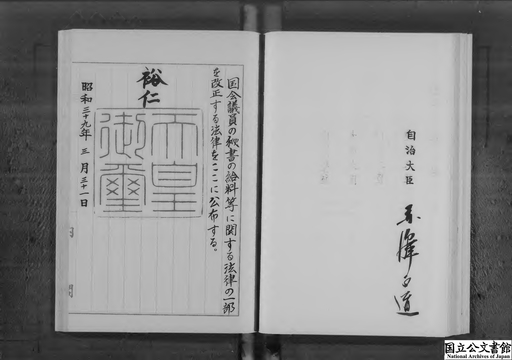 自治大臣
国会議員の秘書の給料等に関する法律の一部
を改正する法律をここに公布する。
裕仁
天皇
御璽
昭和三十九年三月三十一日
国立公文書館
National Archives of Japan